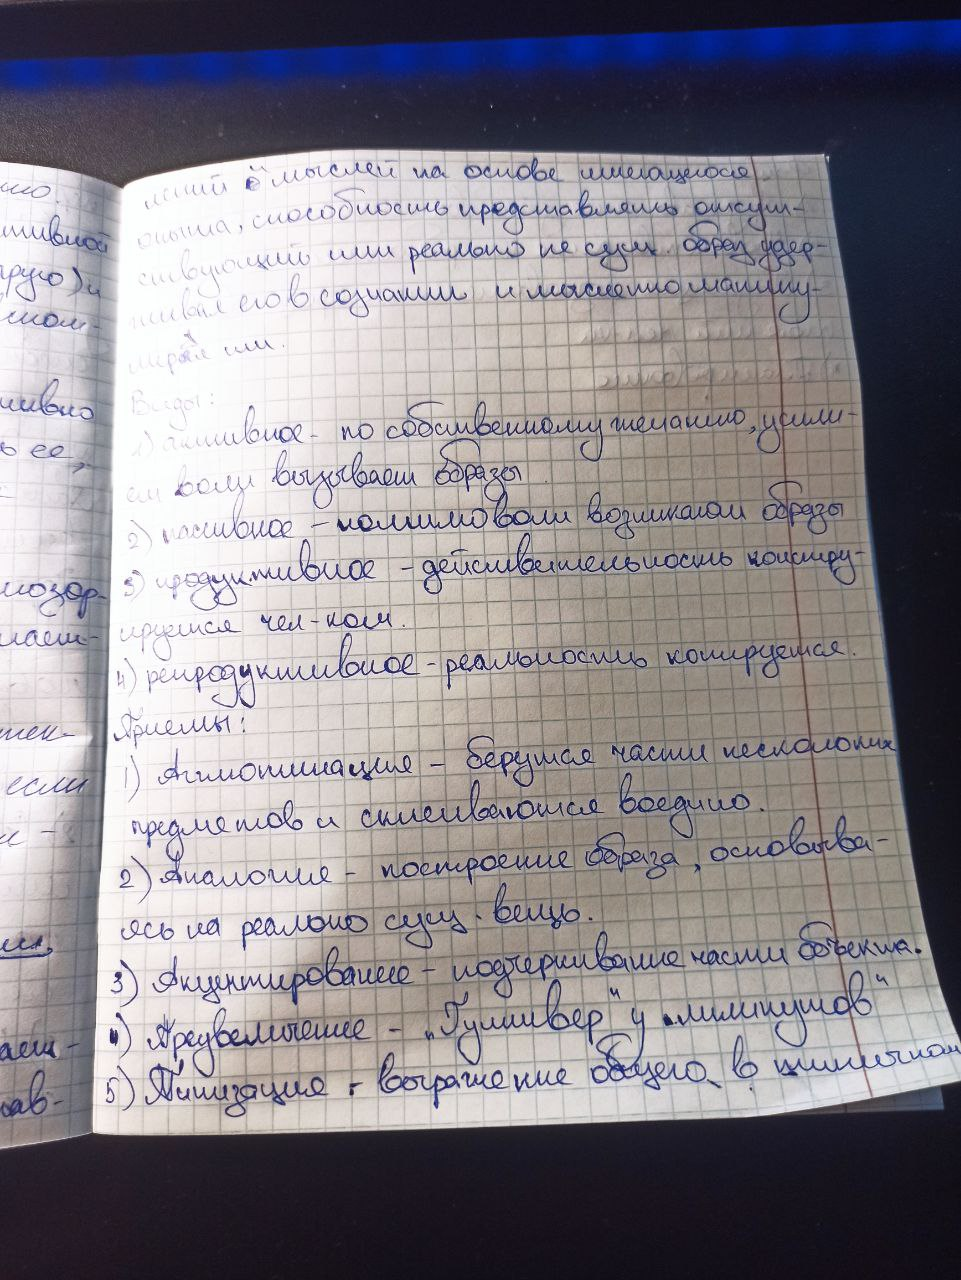 нно.
тивной
другую) и
ком-
ивно
ь ее,
позор-
лает-
тек-
если
и -
ает-
нав-
лений и мыслей на основе имеющегося
опыта, способность представлять отсут-
ствующий или реально не сущ. образ, удер-
живая его в сознании и мысленно манипу-
лируя им.
Виды:
1) активное - по собственному желанию, усили-
ем воли вызываем образы
2) пассивное - помимо воли возникают образы
3) продуктивное - действительность констру-
ируется чел-ком.
4) репродуктивное - реальность копируется.
Приемы:
1) Агглютинация - берутся части нескольких
предметов и склеиваются воедино.
2) Аналогия - построение образа, основыва-
ясь на реально сущ. вещь.
3) Акцентирование - подчеркивание части объекта.
4) Преувеличение - „Гулливер" у „лилипутов"
5) Типизация - выражение общего в типичном